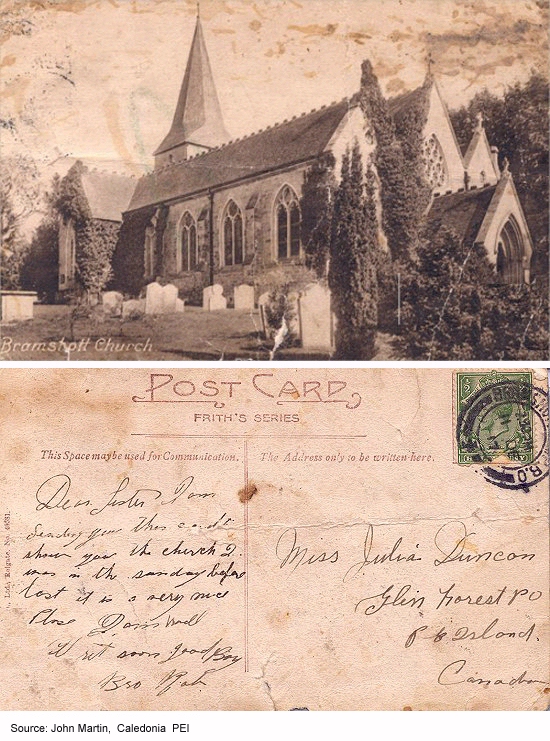 Bramshott Church
POST CARD
FRITH'S SERIES
This Space may be used for Communication.
The Address only to be written here.
Ltd., Reigate. No. 48331.
Dear Sister I am
Sending you this card to
show you the church I
was in the sunday before
last it is a very nice
Place I am well
Writ soon good Boy
Bro Rob
Miss Julia Duncan
Glin forest PO
P E Island.
Canadan
Source: John Martin, Caledonia PEI